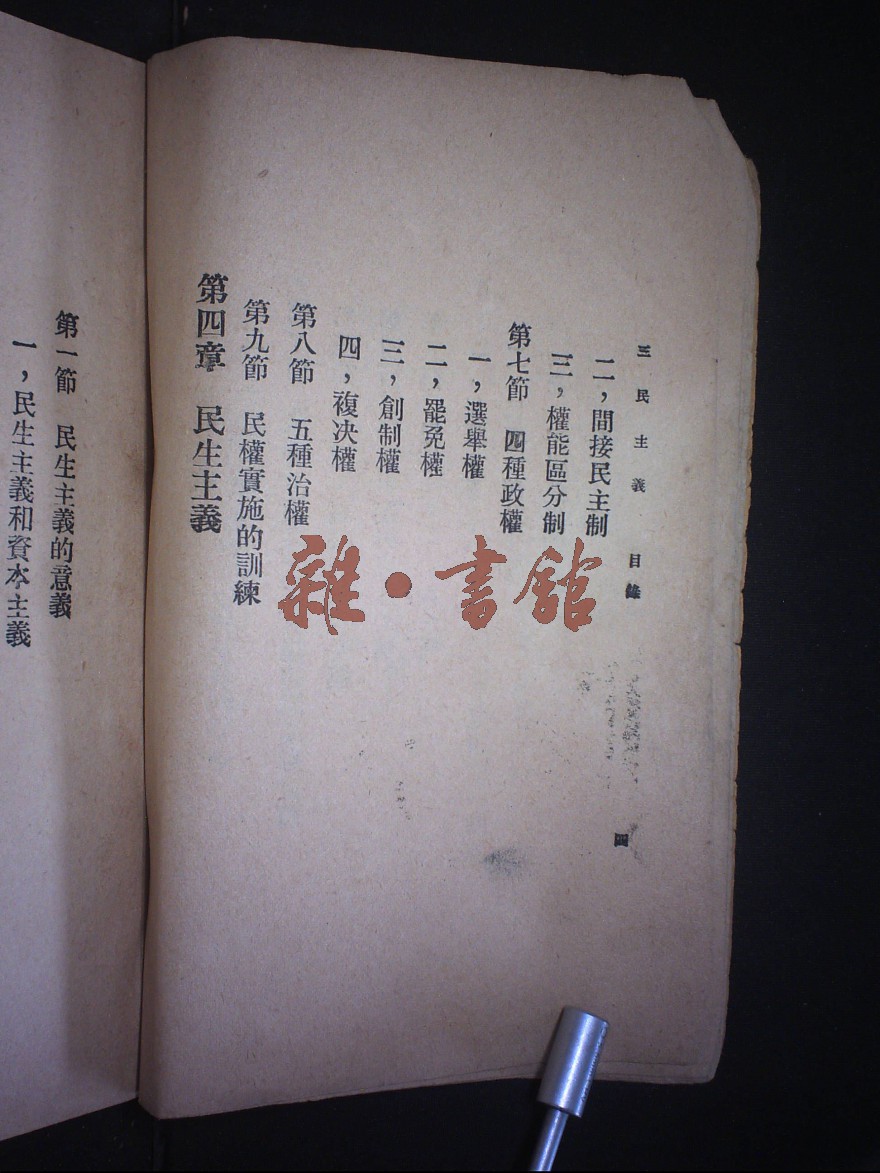 三民主義 目錄 四
二，間接民主制
三，權能區分制
第七節 四種政權
一，選舉權
二，罷免權
三，創制權
四，複决權
第八節 五種治權
第九節 民權實施的訓練
第四章 民生主義
第一節 民生主義的意義
一，民生主義和資本主義
雜·書館